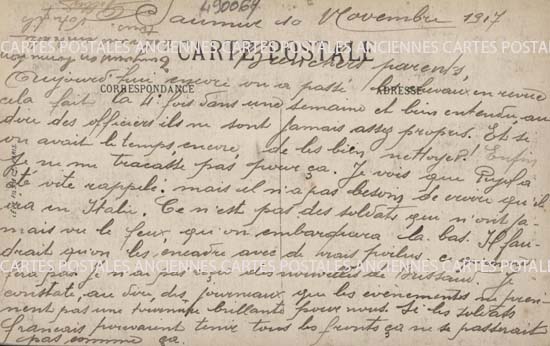 490067
Saumur 10 Novembre 1917
CARTE POSTALE
Bien chers parents,
CORRESPONDANCE
ADRESSE
Aujourd'hui encore on a passé les chevaux en revue
cela fait la 4e fois dans une semaine et bien entendu, au
dire des officiers ils ne sont jamais assez propres. Et si
on avait le temps encore, de les bien nettoyer. Enfin
je ne me tracasse pas pour ça. Je vois que Pujol a
été vite rappelé. mais il n'a pas besoin de croire qu'il
ira en Italie. Ce n'est pas des soldats qui n'ont ja-
mais vu le feu, qu'on embarquera là bas. Il fau-
drait qu'on les encadre avec de vrais poilus, e
je n'ai pas reçu des nouvelles de . Je
constate, au dire des journaux que les évènements ne pren-
nent pas une tournure brillante pour nous. Si les soldats
français pouvaient tenir tous les fronts ça ne se passerait
pas comme ça.
CARTES POSTALES ANCIENNES CARTES POSTALES ANCIENNES